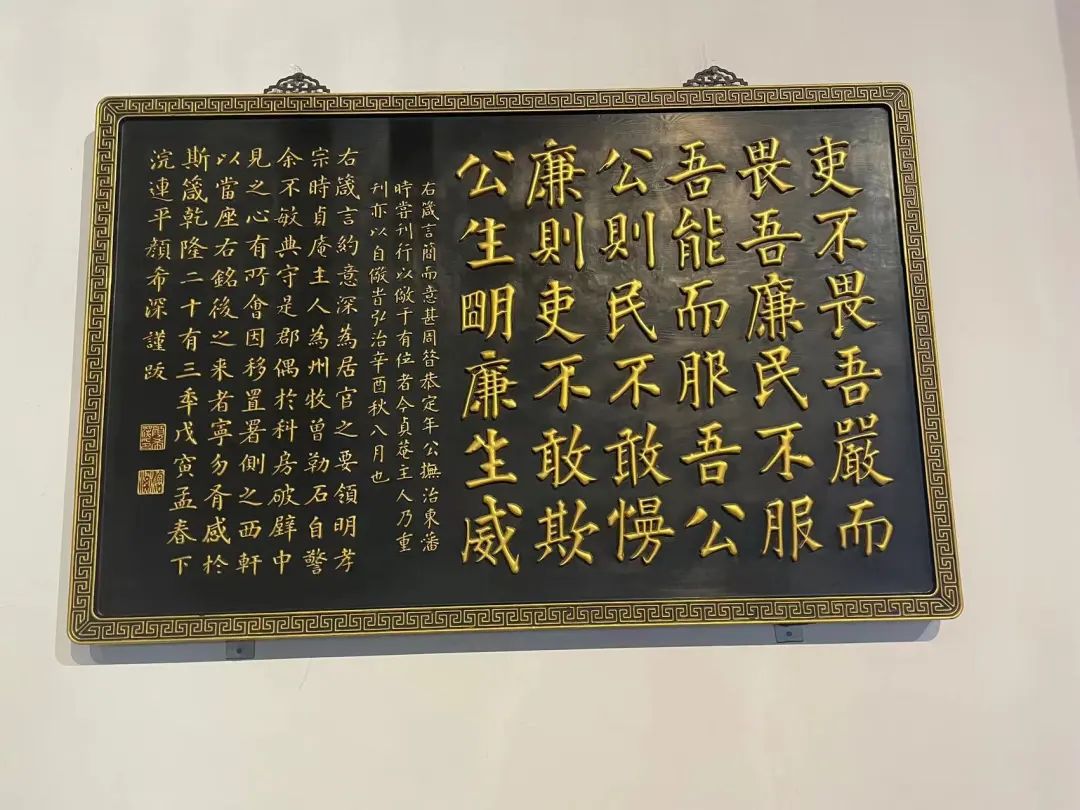 吏不畏吾嚴而
畏吾廉民不服
吾能而服吾公
公則民不敢慢
廉則吏不敢欺
公生明廉生威
右箴言簡而意甚周昔恭定年公撫治東藩
時嘗刊行以儆于有位者今貞菴主人乃重
刊亦以自儆旹弘治辛酉秋八月也
右箴言約意深為居官之要領明孝
宗時貞庵主人為州牧曾勒石自警
余不敏典守是郡偶於科房破壁中
見之心有所會因移置署側之西軒
以當座右銘後之来者寧勿胥感於
斯箴乾隆二十有三年戊寅孟春下
浣連平顏希深謹跋